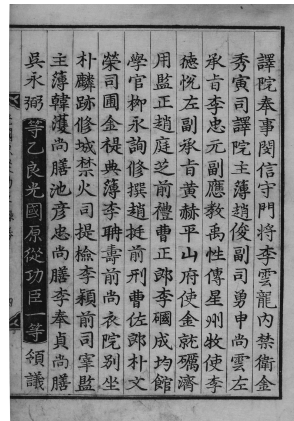 譯院奉事閔信守門將李雲龍內禁衛金
秀寅司譯院主薄趙俊副司勇申尚雲左
承旨李忠元副應教禹性傳星州牧使李
德悅左副承旨黃赫平山府使金就礪濟
用監正趙庭芝前禮曹正郎李國成均館
學官柳永詢修撰趙挺前刑曹佐郎朴文
榮司圃金禔典薄李聃壽前尚衣院別坐
朴麟跡修城禁火司提檢李穎前司宰監
主薄韓濩尚膳池彦忠尚膳李奉貞尚膳
吳永弼等乙良光國原從功臣一等領議